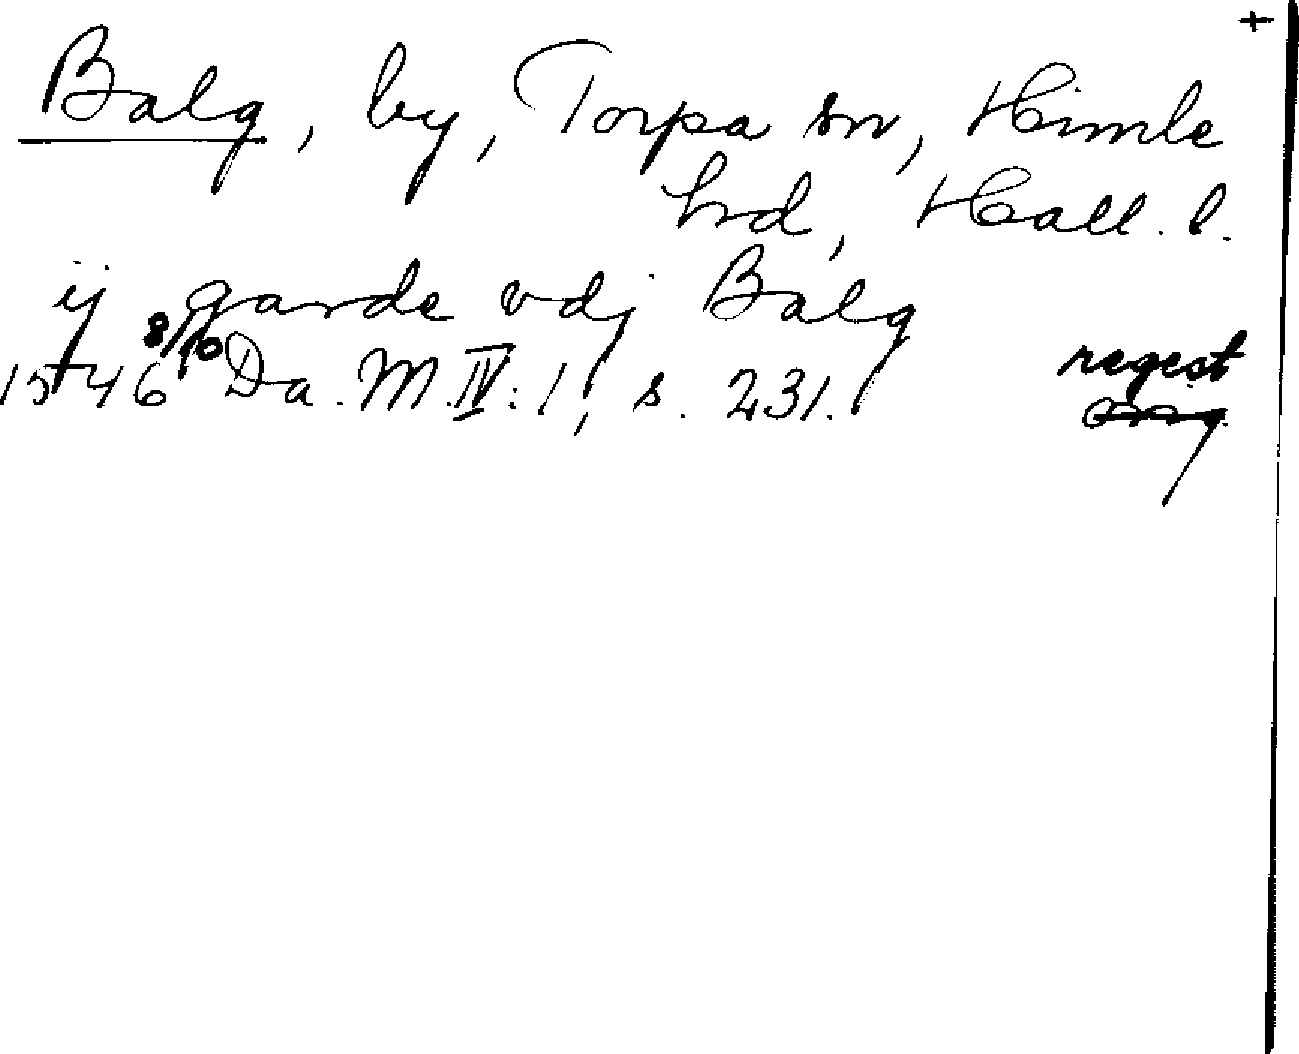 +
Balg, by, Torpa sn, Himle
hd, Hall. l.
ij garde vdj Balg
1546 8/10 Da. M. IV: 1, s. 231.
regest